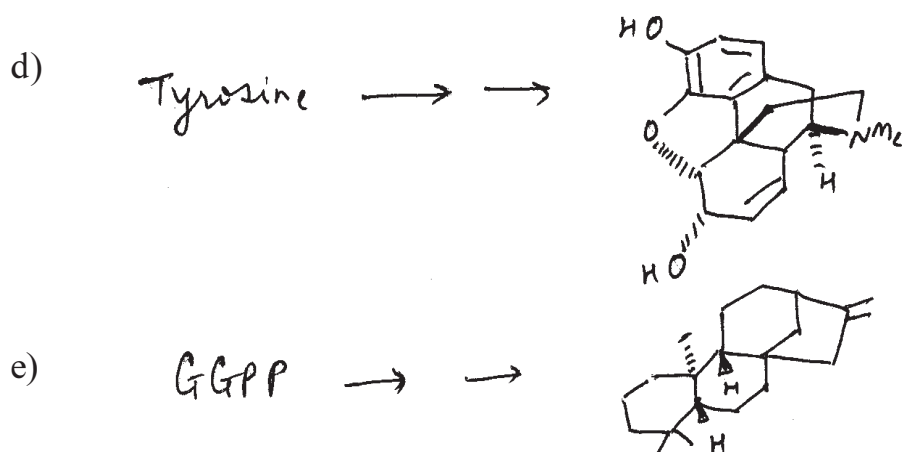 HO
d) Tyrosine
O
NMe
H
HO
e) GGPP
H
H